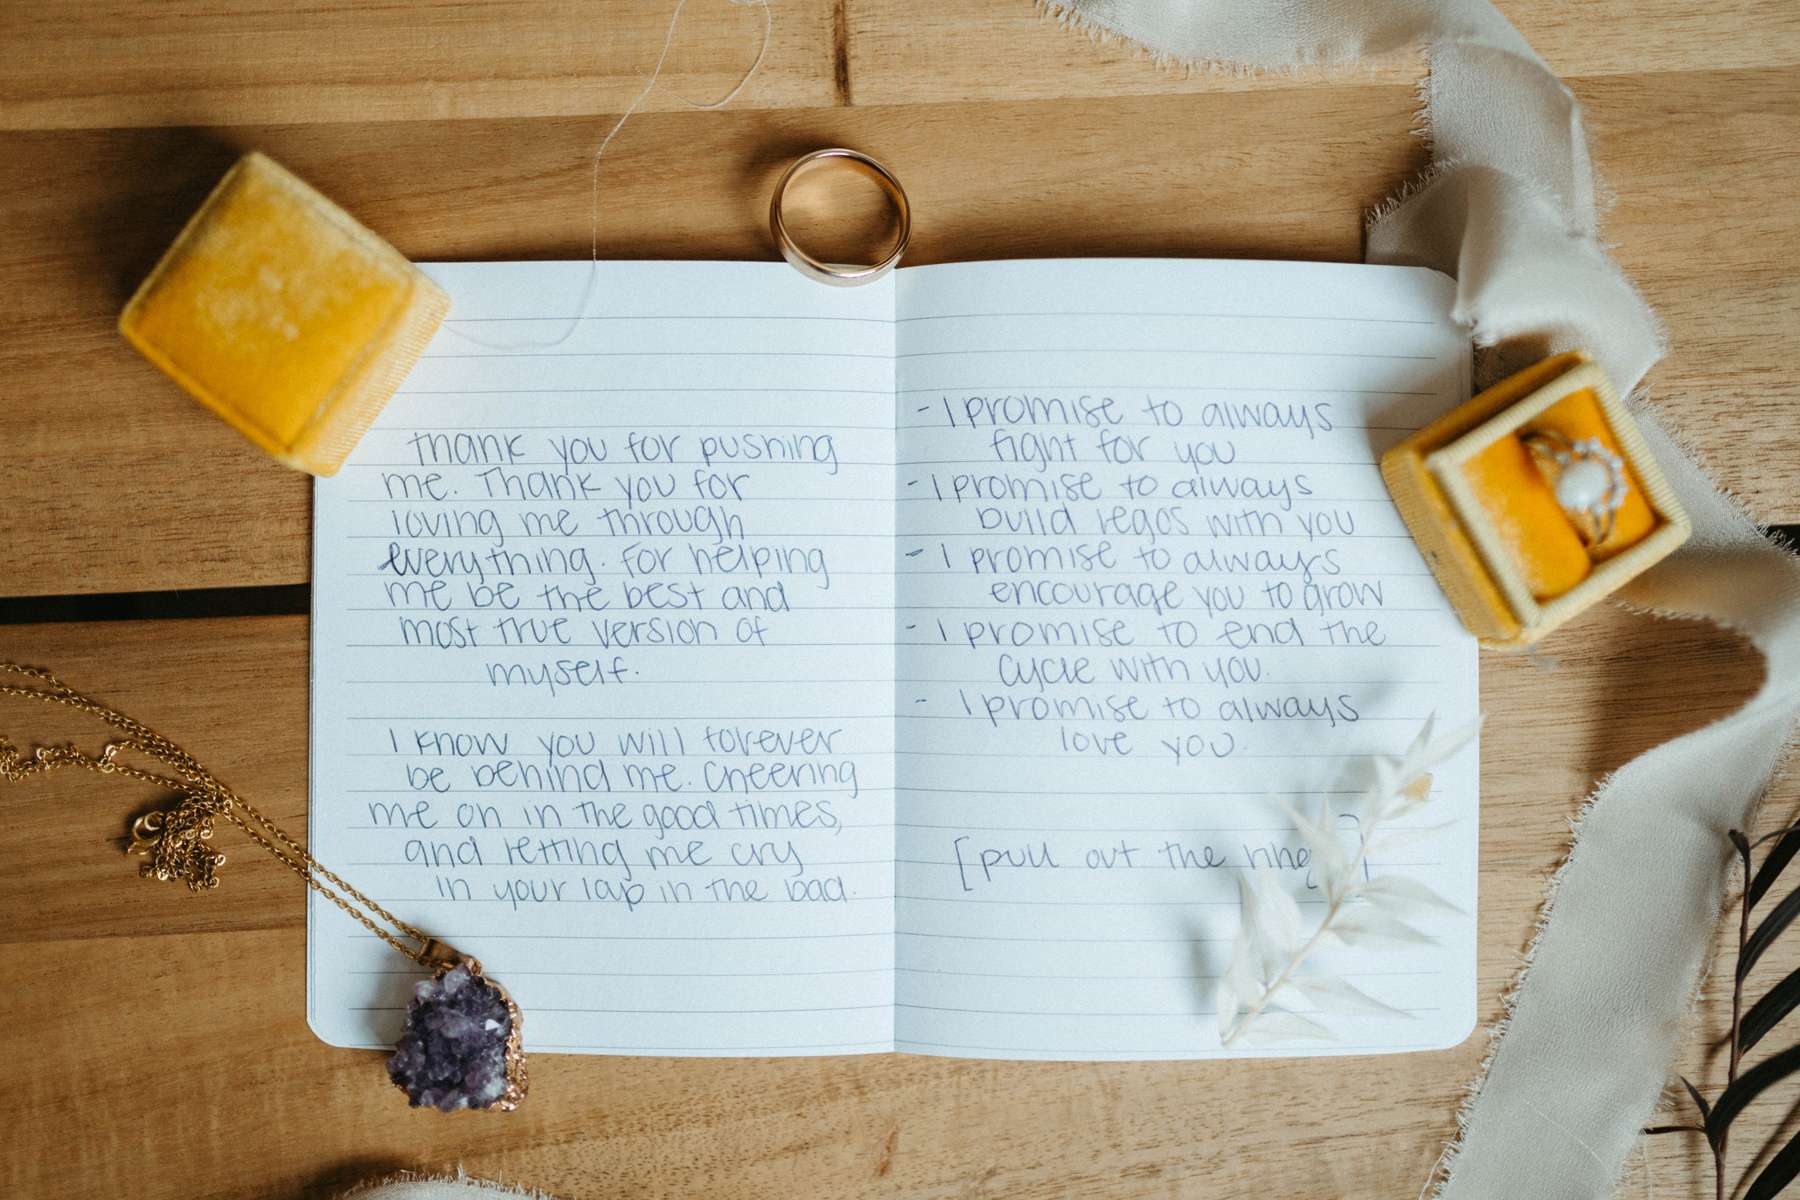 Thank you for pushing
me. Thank you for
loving me through
everything. For helping
me be the best and
most true version of
myself.
I know you will forever
be behind me. Cheering
me on in the good times,
and letting me cry
in your lap in the bad.
- I promise to always
fight for you
- I promise to always
build legos with you
- I promise to always
encourage you to grow
- I promise to end the
cycle with you.
- I promise to always
love you.
[pull out the